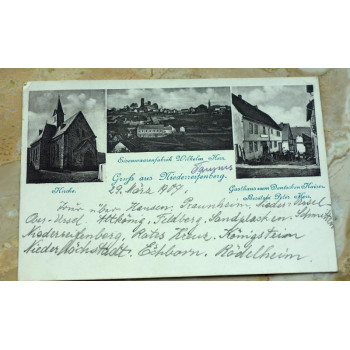 Kirche.
Eisenwarenfabrik Wilhelm Herr.
Taunus
Gruß aus Niederreifenberg.
Gasthaus zum Deutschen Kaiser.
Besitzer Peter Herr.
29. März 1907.
Tour über Hausen, Praunheim, Nieder-Ursel
Ober-Ursel Altkönig, Feldberg, Sandplacken, Schmitten
Niederreifenberg, Rotes Kreuz, Königstein
Niederhöchstadt. Eschborn. Rödelheim.